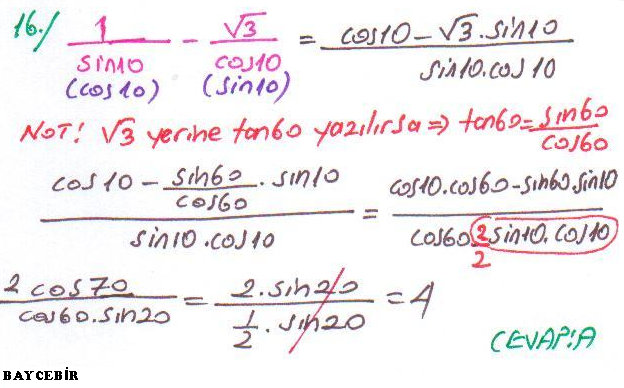 16./ 1/sin10 - √3/cos10 = cos10 - √3.sin10/sin10.cos10
(cos10) (sin10)
NOT! √3 yerine tan60 yazılırsa ⇒ tan60 = sin60/cos60
cos10 - sin60/cos60 . sin10/sin10.cos10 = cos10.cos60 - sin60.sin10/cos60 2/2 sin10.cos10
2cos70/cos60.sin20 = 2.sin20/1/2 . sin20 = 4
CEVAP:A
BAYCEBİR